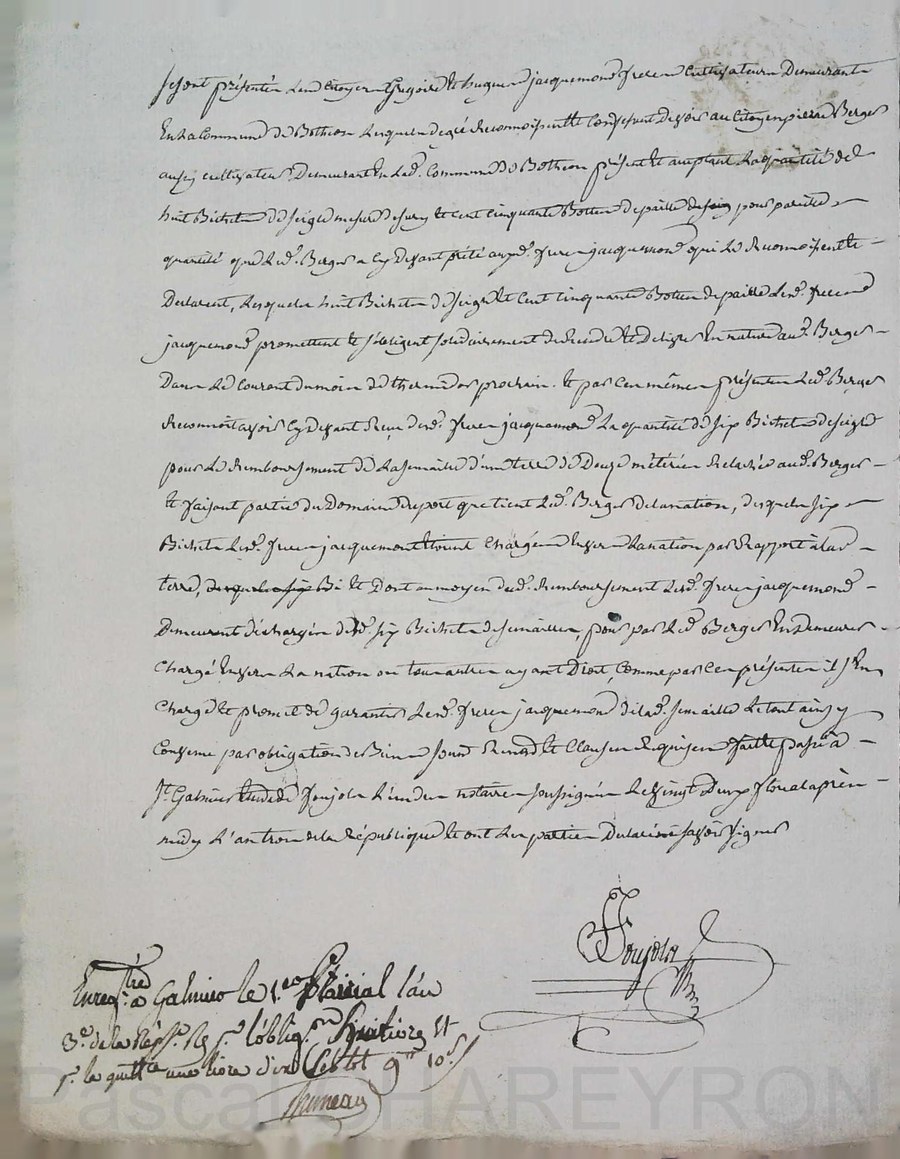 se sont présentés les citoyens Grégoire et hugues jacquemond freres cultivateurs Demeurants
En la Commune de Botheon Lesquels de gré Reconnoissent et Confessent Devoir au Citoyen pierre Berger
aussy cultivateur Demeurant En lad. Commune de Botheon présent et acceptant La quantité de
huit Bichets de seigle mesure de sury et cent cinquante Bottes de paille pour pareille
quantité que led. Berger a cy Devant prété auxd. freres jacquemond qui le Reconnoissent et
Declarent, Lesquels huit Bichets de seigle et cent cinquante Bottes de paille Lesd. freres
jacquemond promettent et s'obligent solidairement de Rendre et Delivrer En nature aud. Berger
Dans Le Courant du mois de thermidor prochain. Et par Ces mêmes présentes Led. Berger
Reconnoit avoir cy Devant Reçu desd. freres jacquemond La quantité de six Bichets de seigle
pour Le Remboursement de La semaille d'une terre de Douze métérées Relachée aud. Berger
et faisant partie du Domaine que tient Led. Berger de la nation, desquels six
Bichets Lesd. freres jacquemond étoient Chargés Envers La nation par Rapport à lad.
terre, desquels six Bi et Dont au moyen dud. Remboursement Lesd. freres jacquemond
Demeurent déchargés desd. six Bichets de semailles, pour par Led. Berger En Demeurer
Chargé Envers La nation ou tous autres ayant Droit, Comme par Ces présentes il s'En
Charge et promet de garantir Lesd. freres jacquemond de lad. semaille Le tout ainsy
Convenu par obligation de Biens soumis Renoncé et Clauses Requises faitte passé à
St. Galmier Etude de Foujols L'un des notaires soussignés Le vingt Deux floreal après
midy L'an trois de la République et ont Les parties Declaré savoir signer
Foujols
Enreg.tré à Galmier le 1.er Prairial l'an
3.e de la Rép.e R. p.r l'oblig.on huit livres Et
p.r la quitt.ce une livre dix sols tot 9# 10s
Bruneau
Pascal CHAREYRON